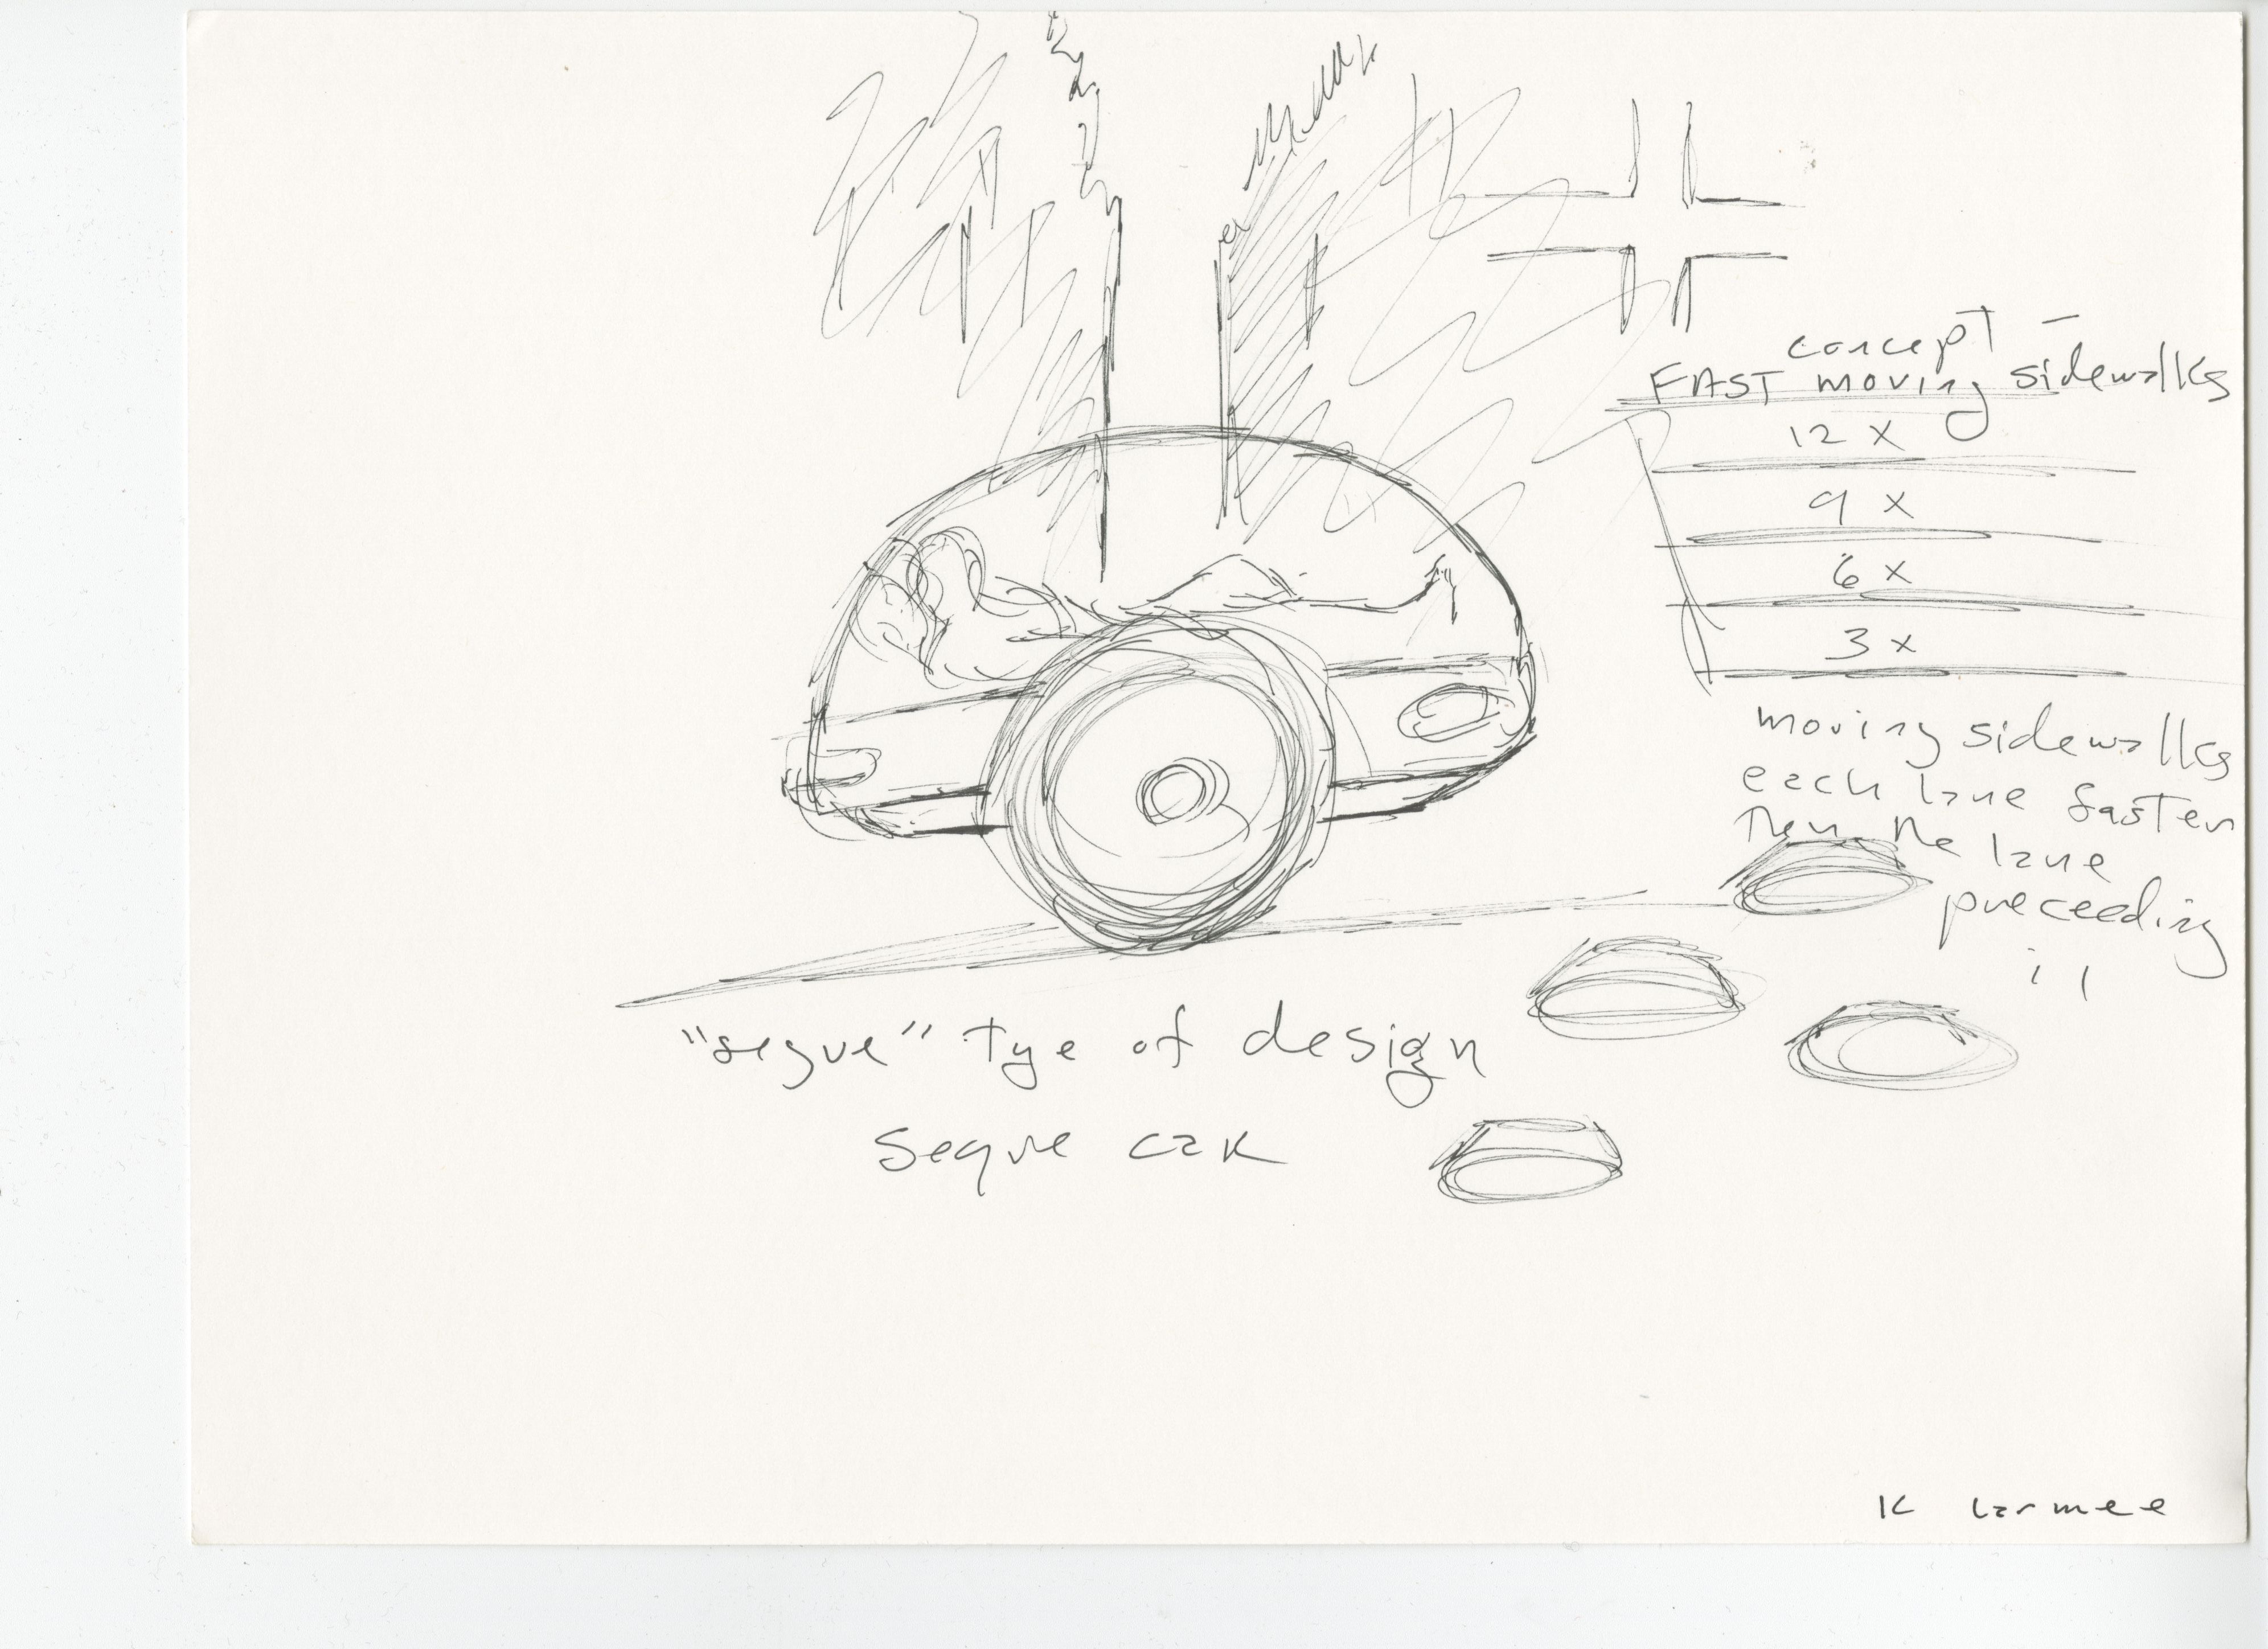 concept -
FAST moving sidewalks
12 x
9 x
6 x
3 x
moving sidewalks
each lane faster
then the lane
preceeding
it
"segue" tye of design
Segue car
K Larmee